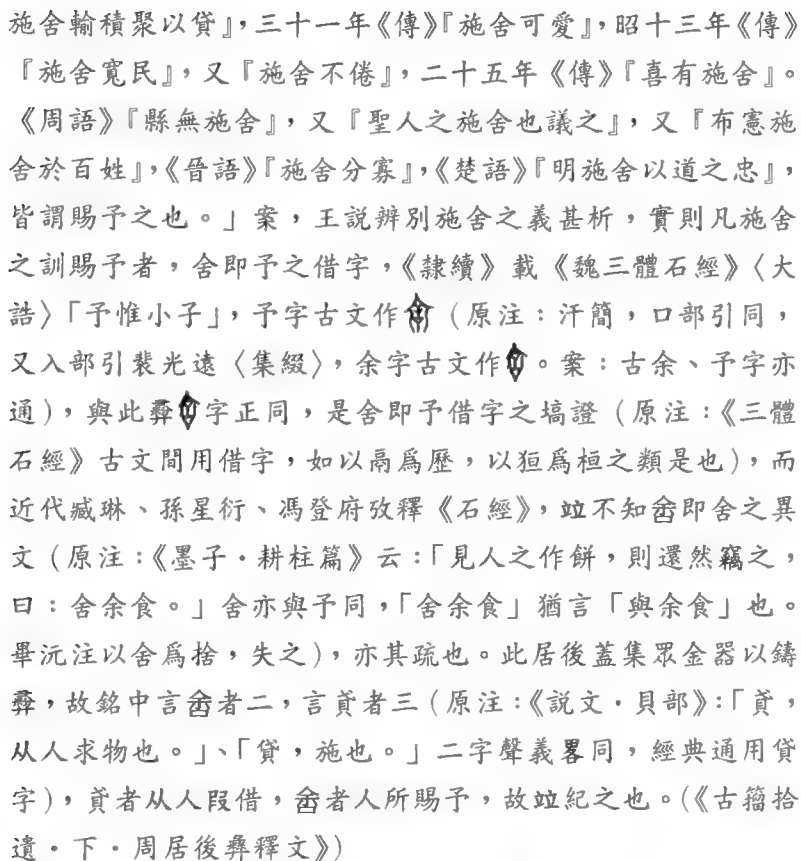 施舍輸積聚以貸』，三十一年《傳》『施舍可愛』，昭十三年《傳》
『施舍寬民』，又『施舍不倦』，二十五年《傳》『喜有施舍』。
《周語》『縣無施舍』，又『聖人之施舍也議之』，又『布憲施
舍於百姓』，《晉語》『施舍分寡』，《楚語》『明施舍以道之忠』，
皆謂賜予之也。」案，王說辨別施舍之義甚析，實則凡施舍
之訓賜予者，舍即予之借字，《隸續》載《魏三體石經》〈大
誥〉「予惟小子」，予字古文作（原注：汗簡，口部引同，
又入部引裴光遠〈集綴〉，余字古文作。案：古余、予字亦
通），與此彝字正同，是舍即予借字之塙證（原注：《三體
石經》古文間用借字，如以鬲爲歷，以狟爲桓之類是也），而
近代臧琳、孫星衍、馮登府攷釋《石經》，竝不知即舍之異
文（原注：《墨子·耕柱篇》云：「見人之作餅，則還然竊之，
曰：舍余食。」舍亦與予同，「舍余食」猶言「與余食」也。
畢沅注以舍爲捨，失之），亦其疏也。此居後蓋集眾金器以鑄
彝，故銘中言者二，言貣者三（原注：《說文·貝部》：「貣，
从人求物也。」、「貸，施也。」二字聲義畧同，經典通用貸
字），貣者从人叚借，者人所賜予，故竝紀之也。(《古籀拾
遺·下·周居後彝釋文》)